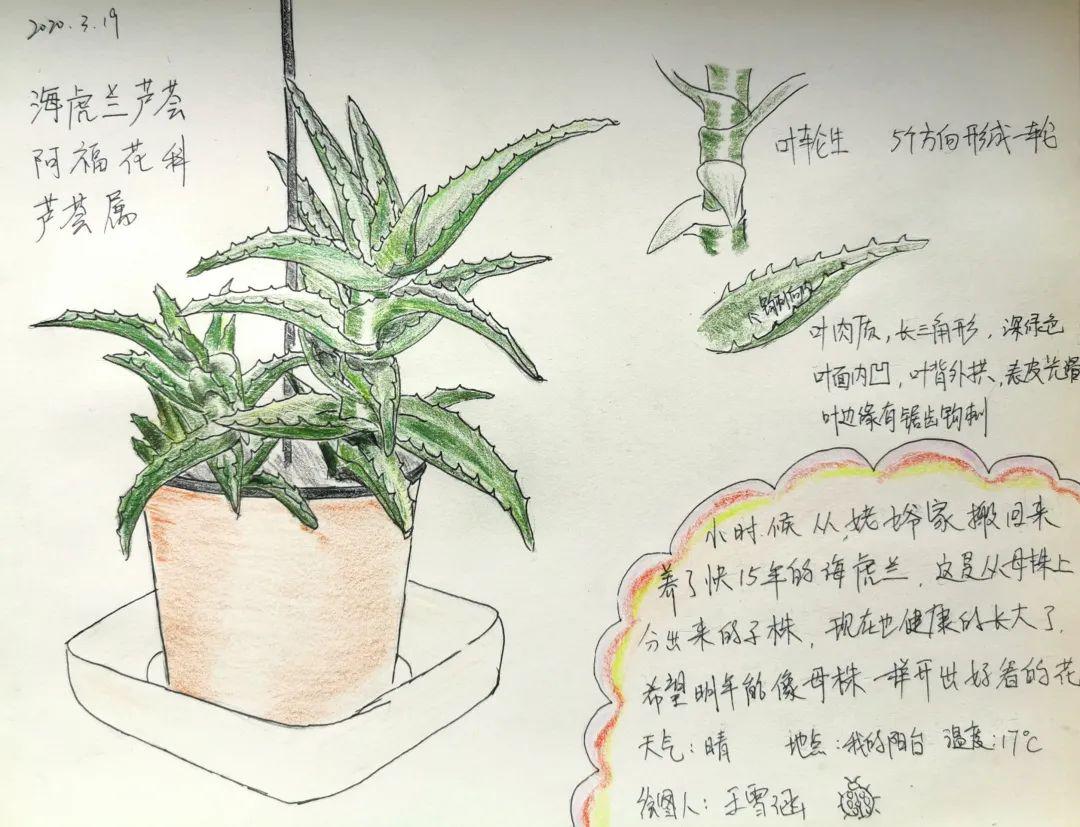 2020.3.19
海虎兰芦荟
阿福花科
芦荟属
叶轮生 5个方向形成一轮
钩刺向内
叶肉质，长三角形，深绿色
叶面内凹，叶背外拱，表皮光滑
叶边缘有锯齿钩刺
小时候从姥爷家搬回来
养了快15年的海虎兰，这是从母株上
分出来的子株，现在也健康的长大了，
希望明年能像母株一样开出好看的花
天气：晴 地点：我的阳台 温度：17℃
绘图人：王雪涵